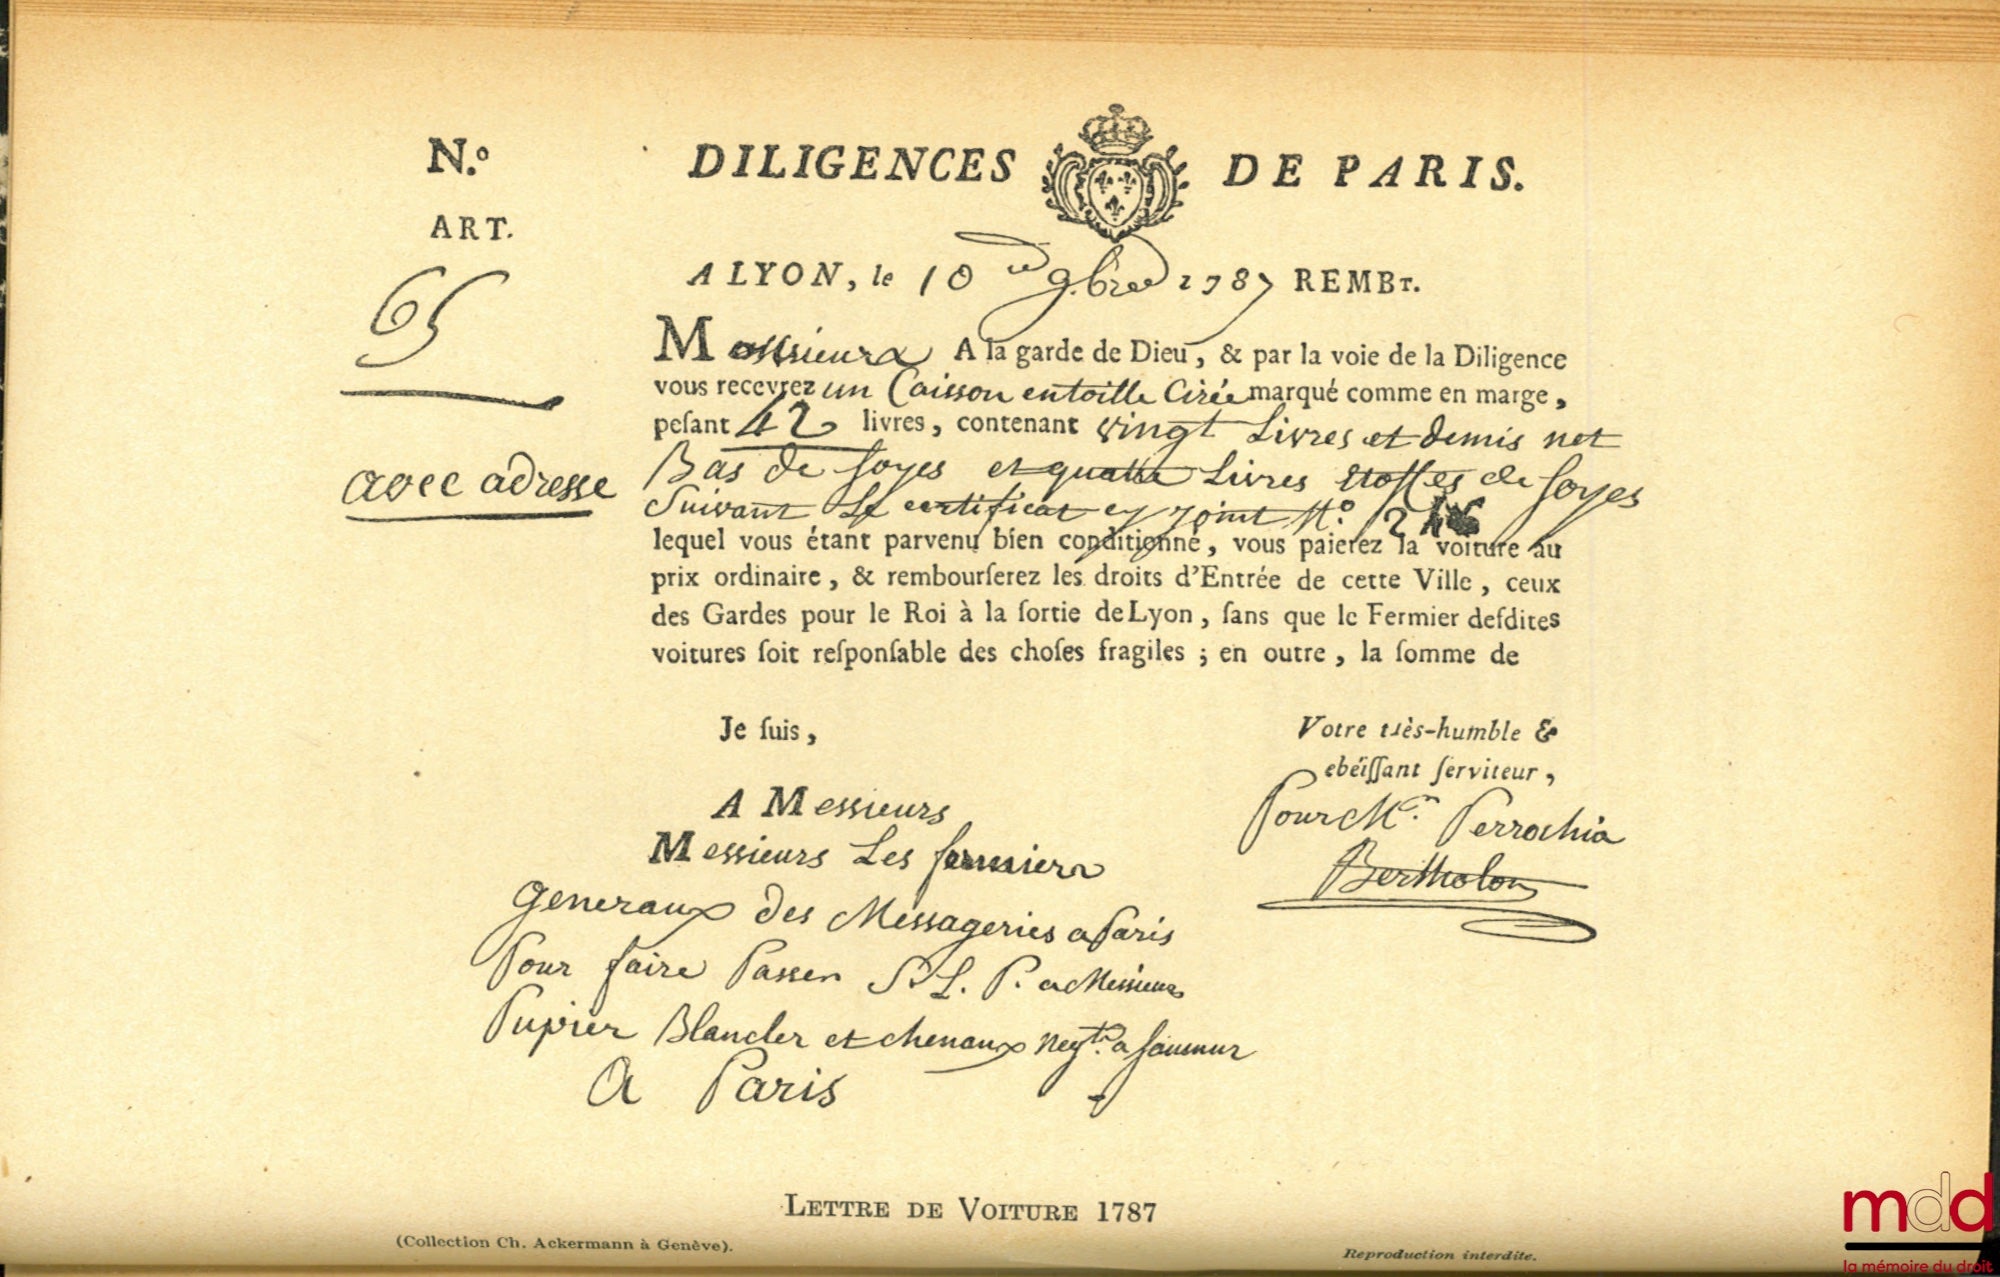 N.º
DILIGENCES DE PARIS.
ART.
65
avec adresse
A LYON, le 10 9.bre 1787 REMBT.
Messieurs A la garde de Dieu, & par la voie de la Diligence
vous recevrez un Caisson entoille Cirée marqué comme en marge,
peſant 42 livres, contenant vingt Livres et demis net
Bas de soyes et quatre Livres etoffes de soyes
Suivant Le certificat cy joint Nº. 12
lequel vous étant parvenu bien conditionné, vous paierez la voiture au
prix ordinaire, & rembourſerez les droits d'Entrée de cette Ville, ceux
des Gardes pour le Roi à la ſortie de Lyon, ſans que le Fermier deſdites
voitures ſoit reſponſable des choſes fragiles; en outre, la ſomme de
Je ſuis,
Votre très-humble &
obéiſſant ſerviteur,
Pour Mr. Perrochia
Bertholon
A Messieurs
Messieurs Les fermiers
Generaux des Messageries a Paris
Pour faire Passer S. L. P. a Messieurs
Pupier Blancler et chenaux negts. a Saumur
A Paris
LETTRE DE VOITURE 1787
(Collection Ch. Ackermann à Genève).
Reproduction interdite.
mdd
la mémoire du droit